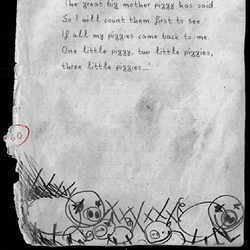 The great big mother piggy has said
So I will count them first to see
If all my piggies came back to me.
One little piggy, two little piggies,
three little piggies...'
60